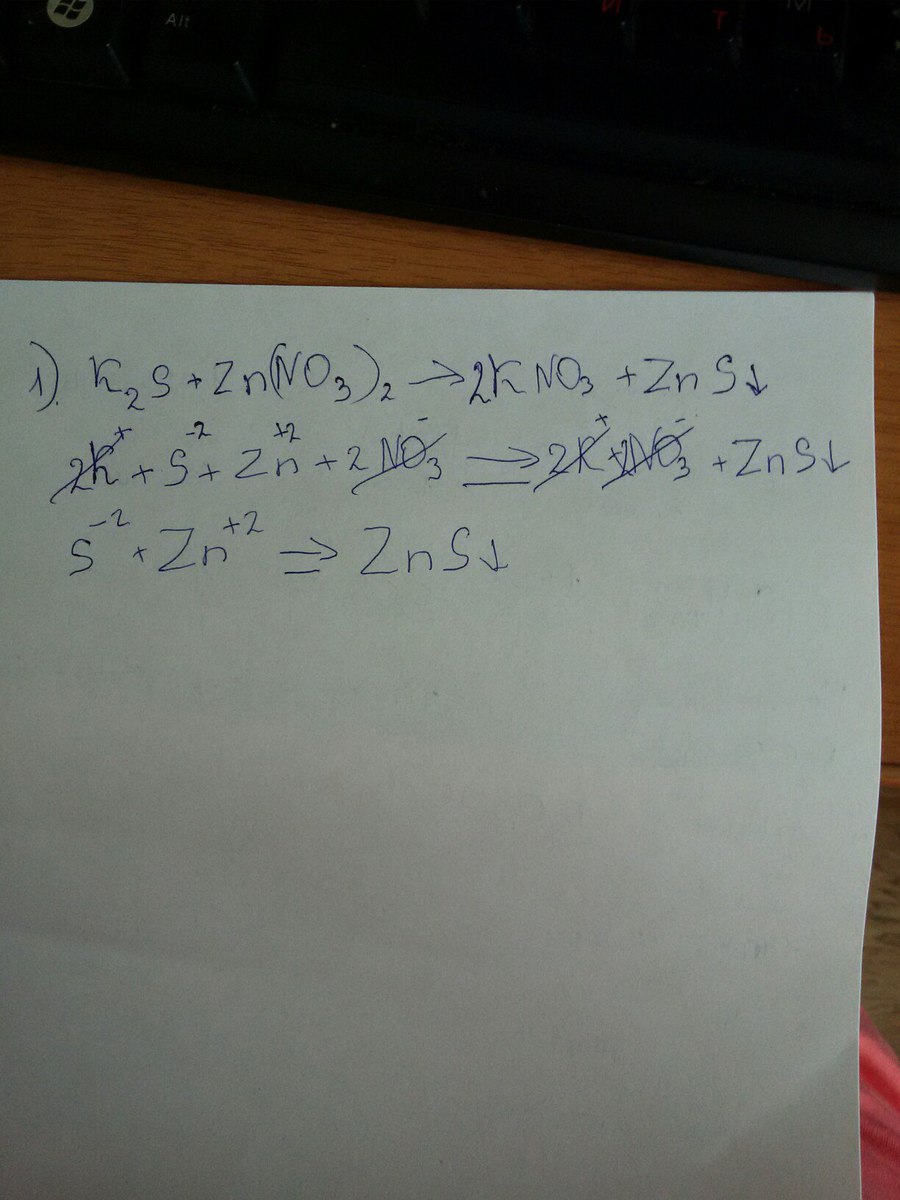 Alt
И
Т
М
Ь
1). K₂S + Zn(NO₃)₂ → 2KNO₃ + ZnS↓
2K⁺ + S⁻² + Zn⁺² + 2NO₃⁻ ⇒ 2K⁺ + 2NO₃⁻ + ZnS↓
S⁻² + Zn⁺² ⇒ ZnS↓